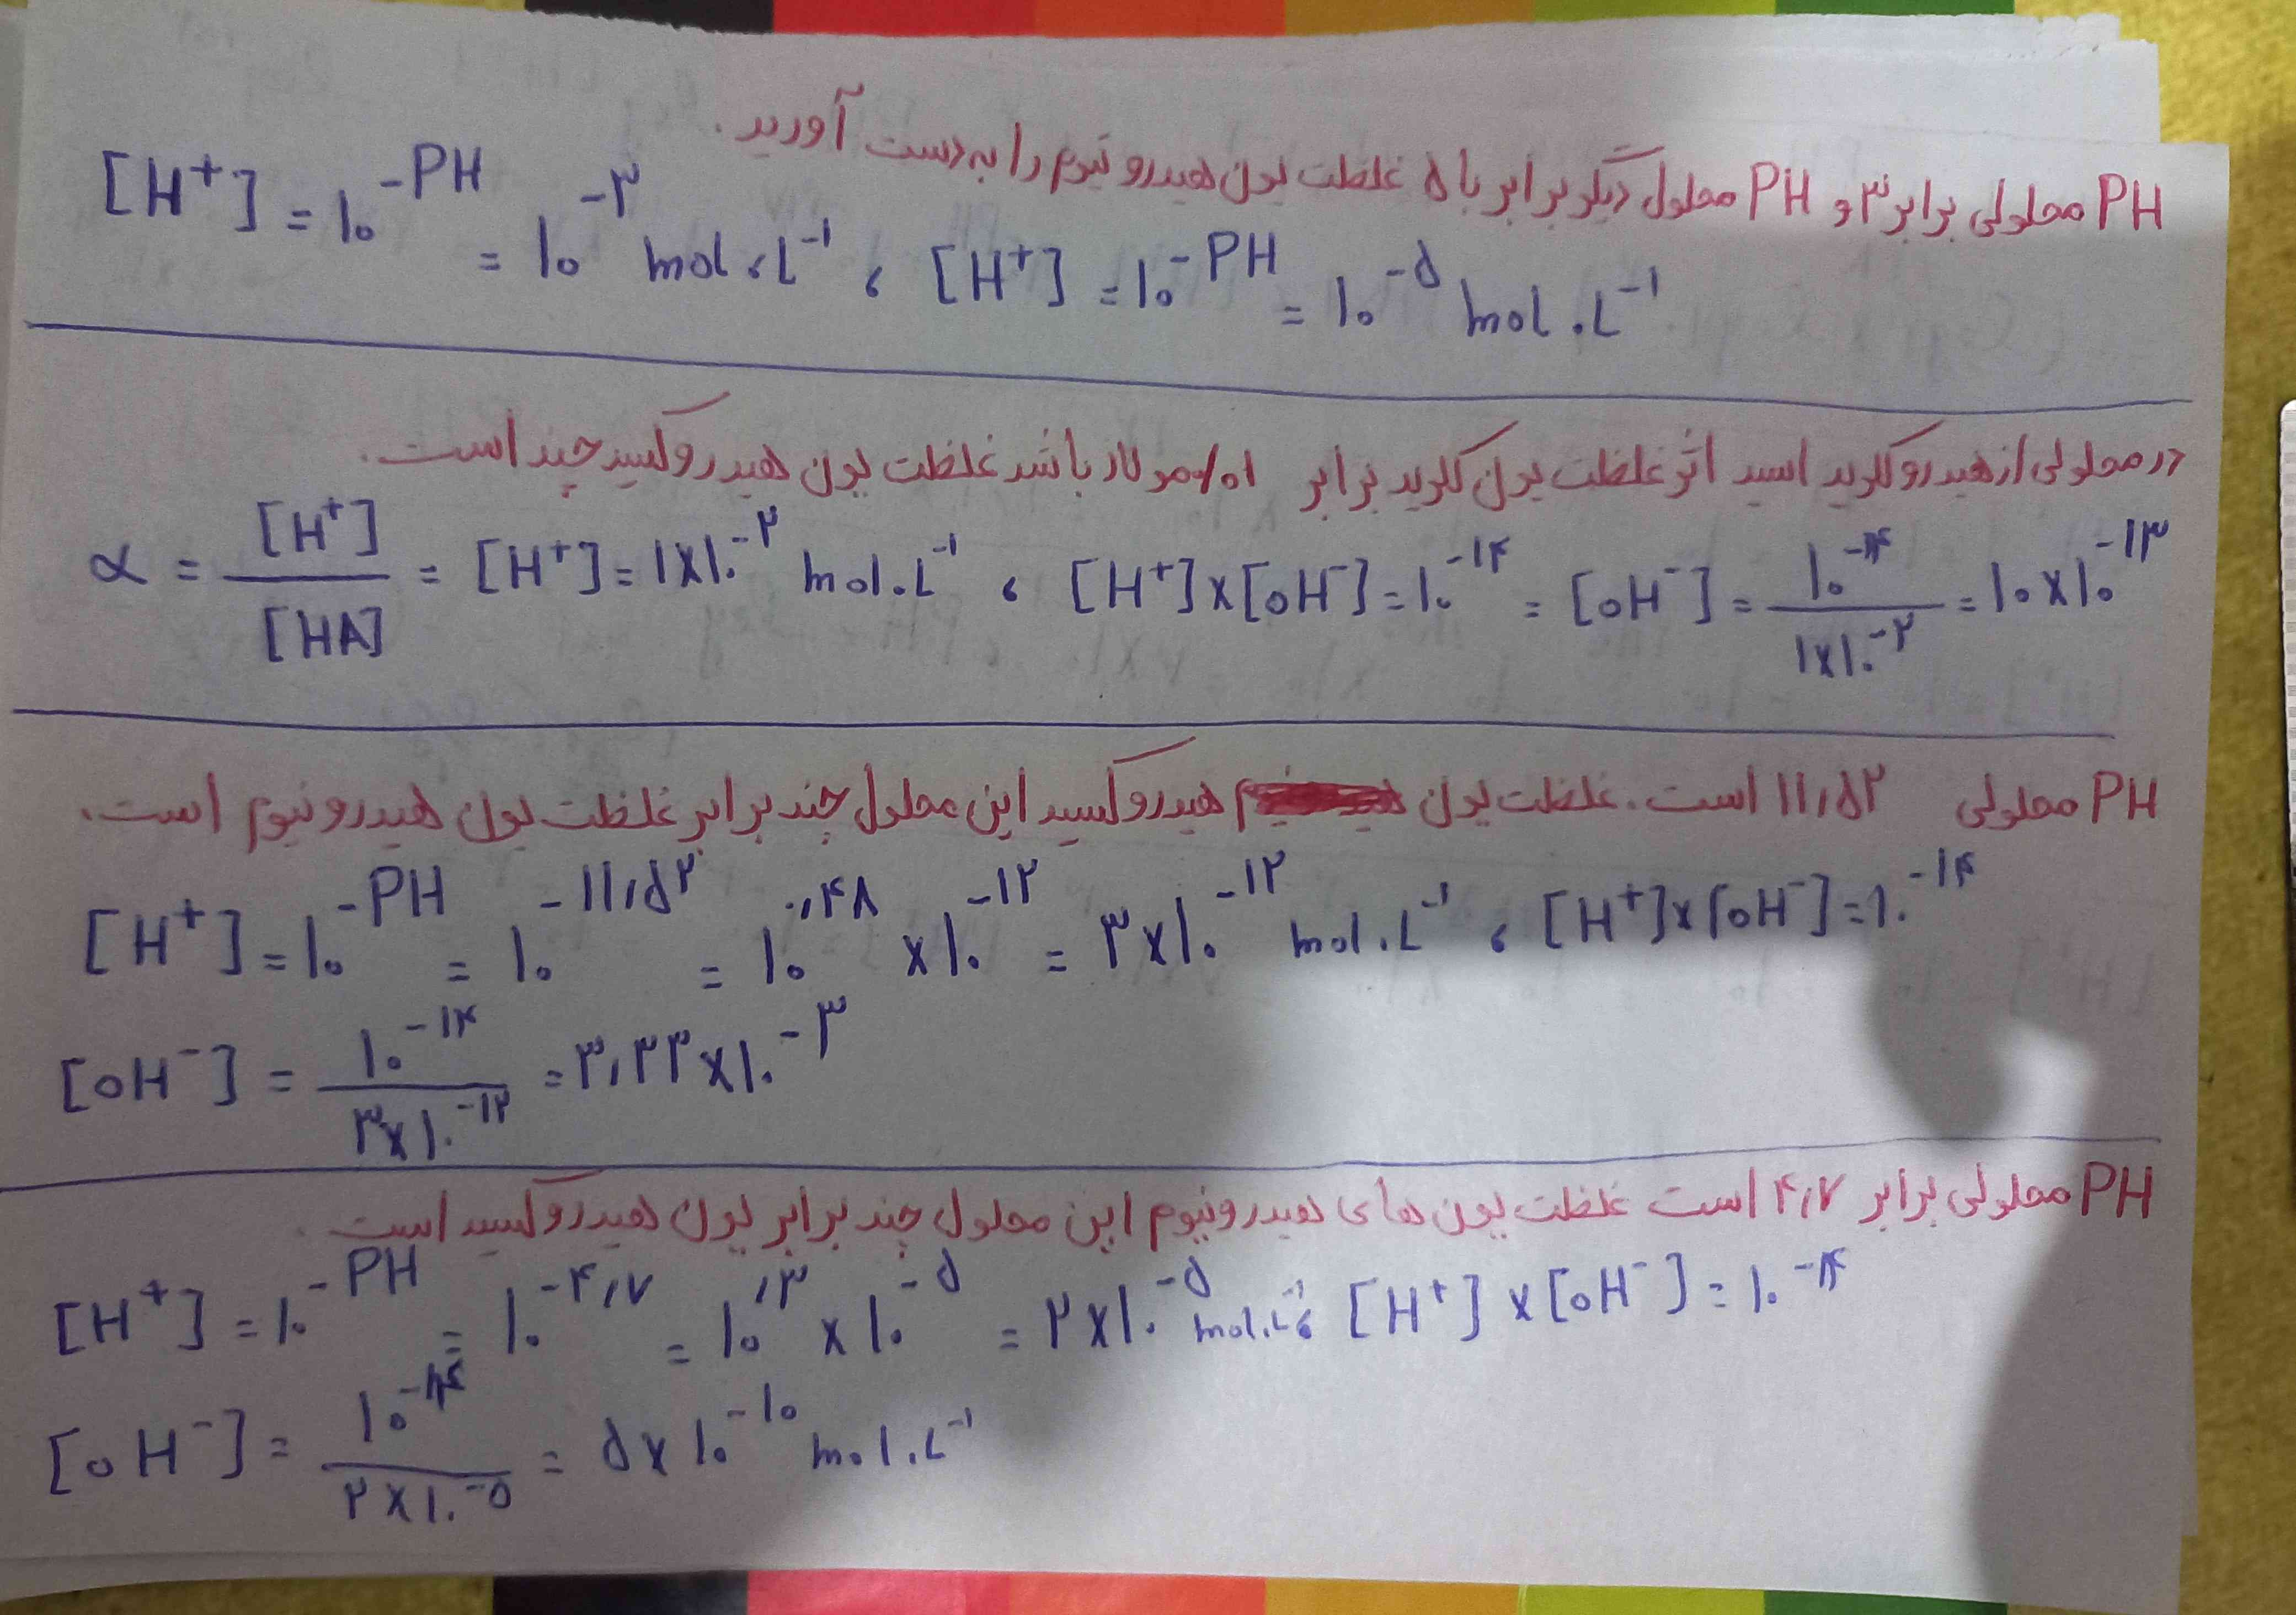 PH محلولی برابر ۳ و PH محلول دیگر برابر با ۵ غلظت یون هیدرونیوم را به دست آورید.
[H⁺] = ۱۰^-PH = ۱۰^-۳ mol.L^-۱ ، [H⁺] = ۱۰^-PH = ۱۰^-۵ mol.L^-۱
در محلولی از هیدروکلرید اسید اگر غلظت یون کلرید برابر ۰/۰۱ مولار باشد غلظت یون هیدروکسید چند است.
α = [H⁺]/[HA] = [H⁺] = ۱×۱۰^-۲ mol.L^-۱ ، [H⁺]×[OH⁻] = ۱۰^-۱۴ = [OH⁻] = ۱۰^-۱۴/۱×۱۰^-۲ = ۱۰×۱۰^-۱۳
PH محلولی ۱۱,۵۲ است. غلظت یون هیدروکسید این محلول چند برابر غلظت یون هیدرونیوم است.
[H⁺] = ۱۰^-PH = ۱۰^-۱۱,۵۲ = ۱۰^۰,۴۸ × ۱۰^-۱۲ = ۳×۱۰^-۱۲ mol.L^-۱ ، [H⁺]×[OH⁻] = ۱۰^-۱۴
[OH⁻] = ۱۰^-۱۴/۳×۱۰^-۱۲ = ۳,۳۳×۱۰^-۳
PH محلولی برابر ۴,۷ است غلظت یون های هیدرونیوم این محلول چند برابر یون هیدروکسید است.
[H⁺] = ۱۰^-PH = ۱۰^-۴,۷ = ۱۰^,۳ × ۱۰^-۵ = ۲×۱۰^-۵ mol.L^-۱ ، [H⁺]×[OH⁻] = ۱۰^-۱۴
[OH⁻] = ۱۰^-۱۴/۲×۱۰^-۵ = ۵×۱۰^-۱۰ mol.L^-۱